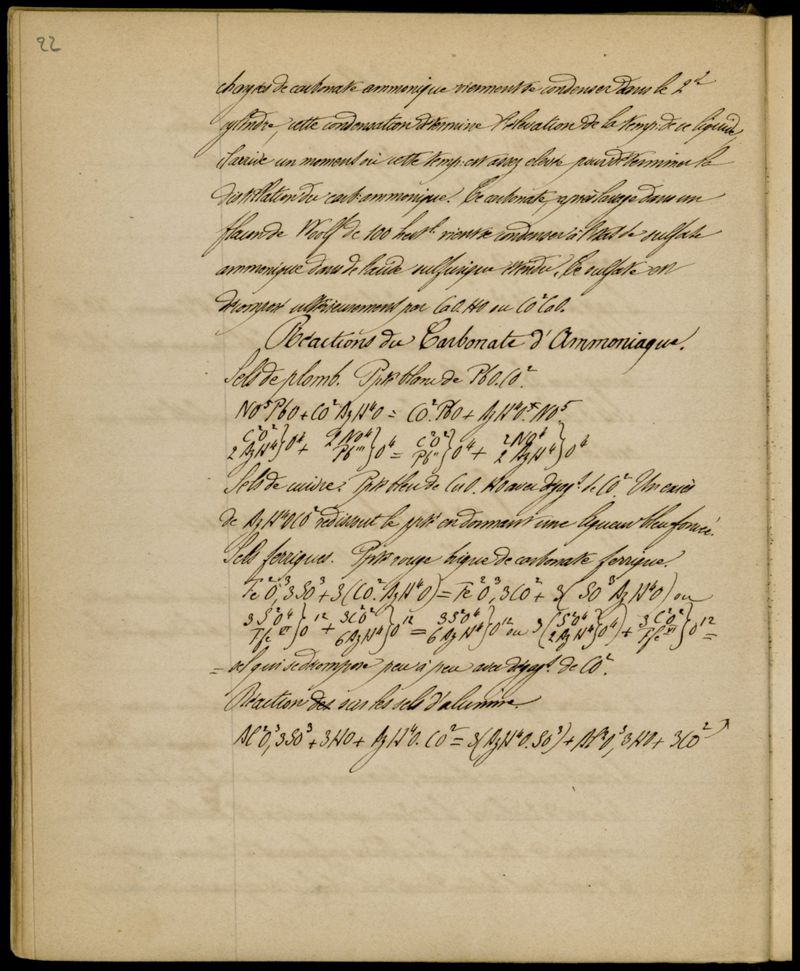 22
chargées de carbonate ammonique viennent se condenser dans le 2d
cylindre, cette condensation détermine l'élévation de la temp. de ce liquide,
il arrive un moment où cette temp. est assez élevée pour déterminer la
distillation du carb. ammonique. Ce carbonate, après lavage dans un
flacon de Woolf de 100 hect. vient se condenser à l'état de sulfate
ammonique dans de l'acide sulfurique étendu. Ce sulfate est
décomposé ultérieurement par CaO.HO ou CO²CaO.
Réactions du Carbonate d'Ammoniaque.
Sels de plomb. Ppté blanc de PbO.CO².
NO⁵PbO + CO²AzH⁴O = CO².PbO + AzH⁴O.NO⁵
C²O² 2AzH⁴}O⁴ + 2NO⁴ Pb"}O⁴ = C²O² Pb"}O⁴ + 2NO⁴ 2AzH⁴}O⁴
Sels de cuivre : Ppté bleu de CuO.HO avec dégagt de CO². Un excès
de AzH⁴OCO² redissout le ppté en donnant une liqueur bleu foncé.
Sels ferriques. Ppté rouge brique de carbonate ferrique.
Fe²O³,3SO³ + 3(CO².AzH⁴O) = Fe²O³,3CO² + 3(SO³AzH⁴O) ou
3S²O⁴ Ffe VI}O¹² + 3C²O² 6AzH⁴}O¹² = 3S²O⁴ 6AzH⁴}O¹² ou 3(S²O⁴ 2AzH⁴}O⁴) + 3C²O² Ffe VI}O¹² =
= sel qui se décompose peu à peu avec dégagt de CO².
Réaction des sur les sels d'alumine.
Al²O³,3SO³ + 3HO + AzH⁴O.CO² = 3(AzH⁴O.SO³) + Al²O³,3HO + 3CO²